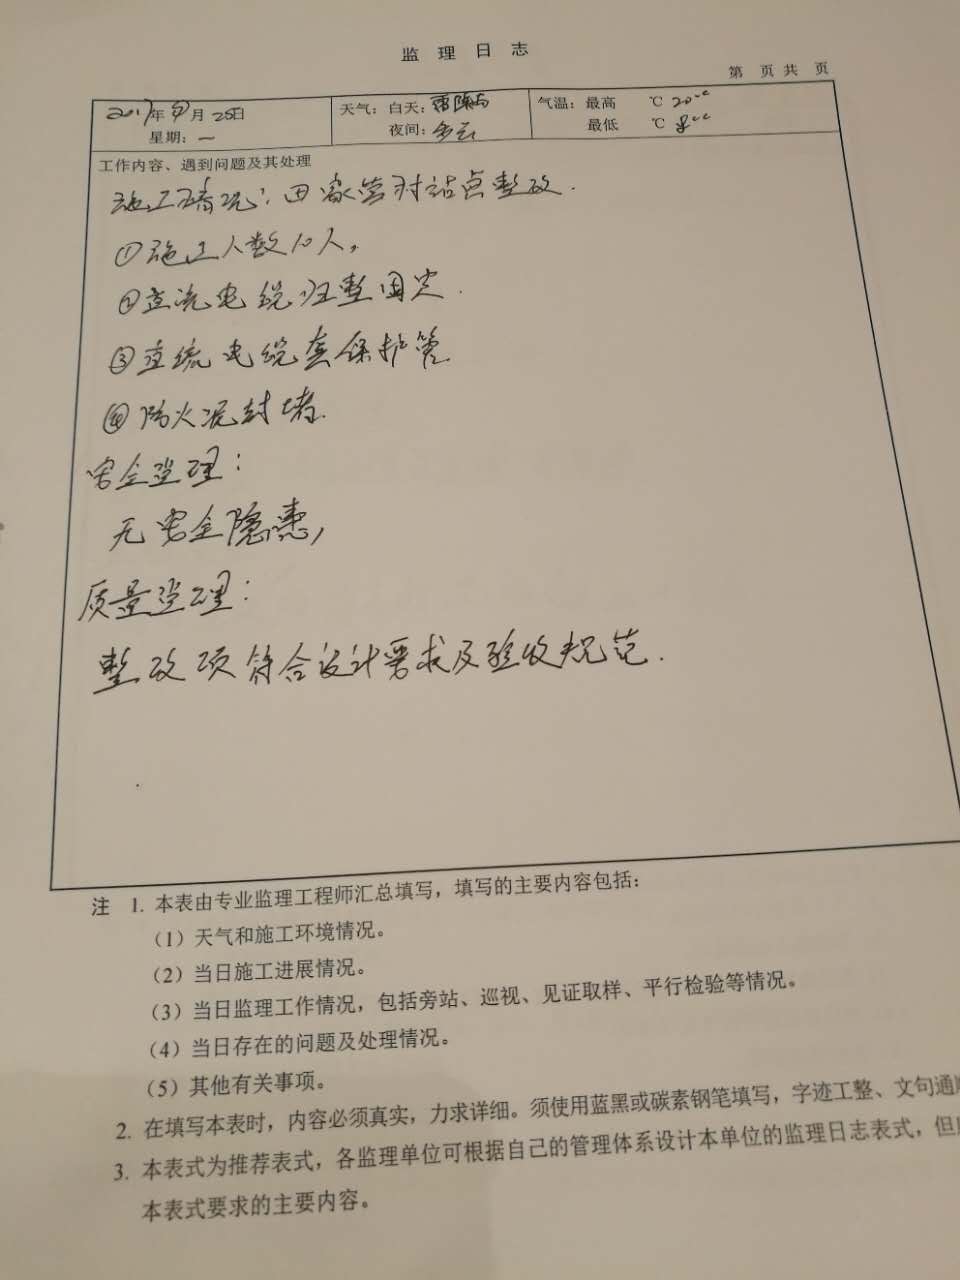 监 理 日 志
第 页 共 页
2017年 月 25日
星期：一
天气：白天：雷阵雨
夜间：多云
气温：最高 ℃ 20℃
最低 ℃ 8℃
工作内容、遇到问题及其处理
施工情况：田家营村站点整改.
①施工人数10人,
②直流电缆归整固定.
③直流电缆套保护管
④防火泥封堵.
安全监理：
无安全隐患,
质量监理：
整改项符合设计要求及验收规范.
注 1. 本表由专业监理工程师汇总填写，填写的主要内容包括：
（1）天气和施工环境情况。
（2）当日施工进展情况。
（3）当日监理工作情况，包括旁站、巡视、见证取样、平行检验等情况。
（4）当日存在的问题及处理情况。
（5）其他有关事项。
2. 在填写本表时，内容必须真实，力求详细。须使用蓝黑或碳素钢笔填写，字迹工整、文句通
3. 本表式为推荐表式，各监理单位可根据自己的管理体系设计本单位的监理日志表式，但
本表式要求的主要内容。